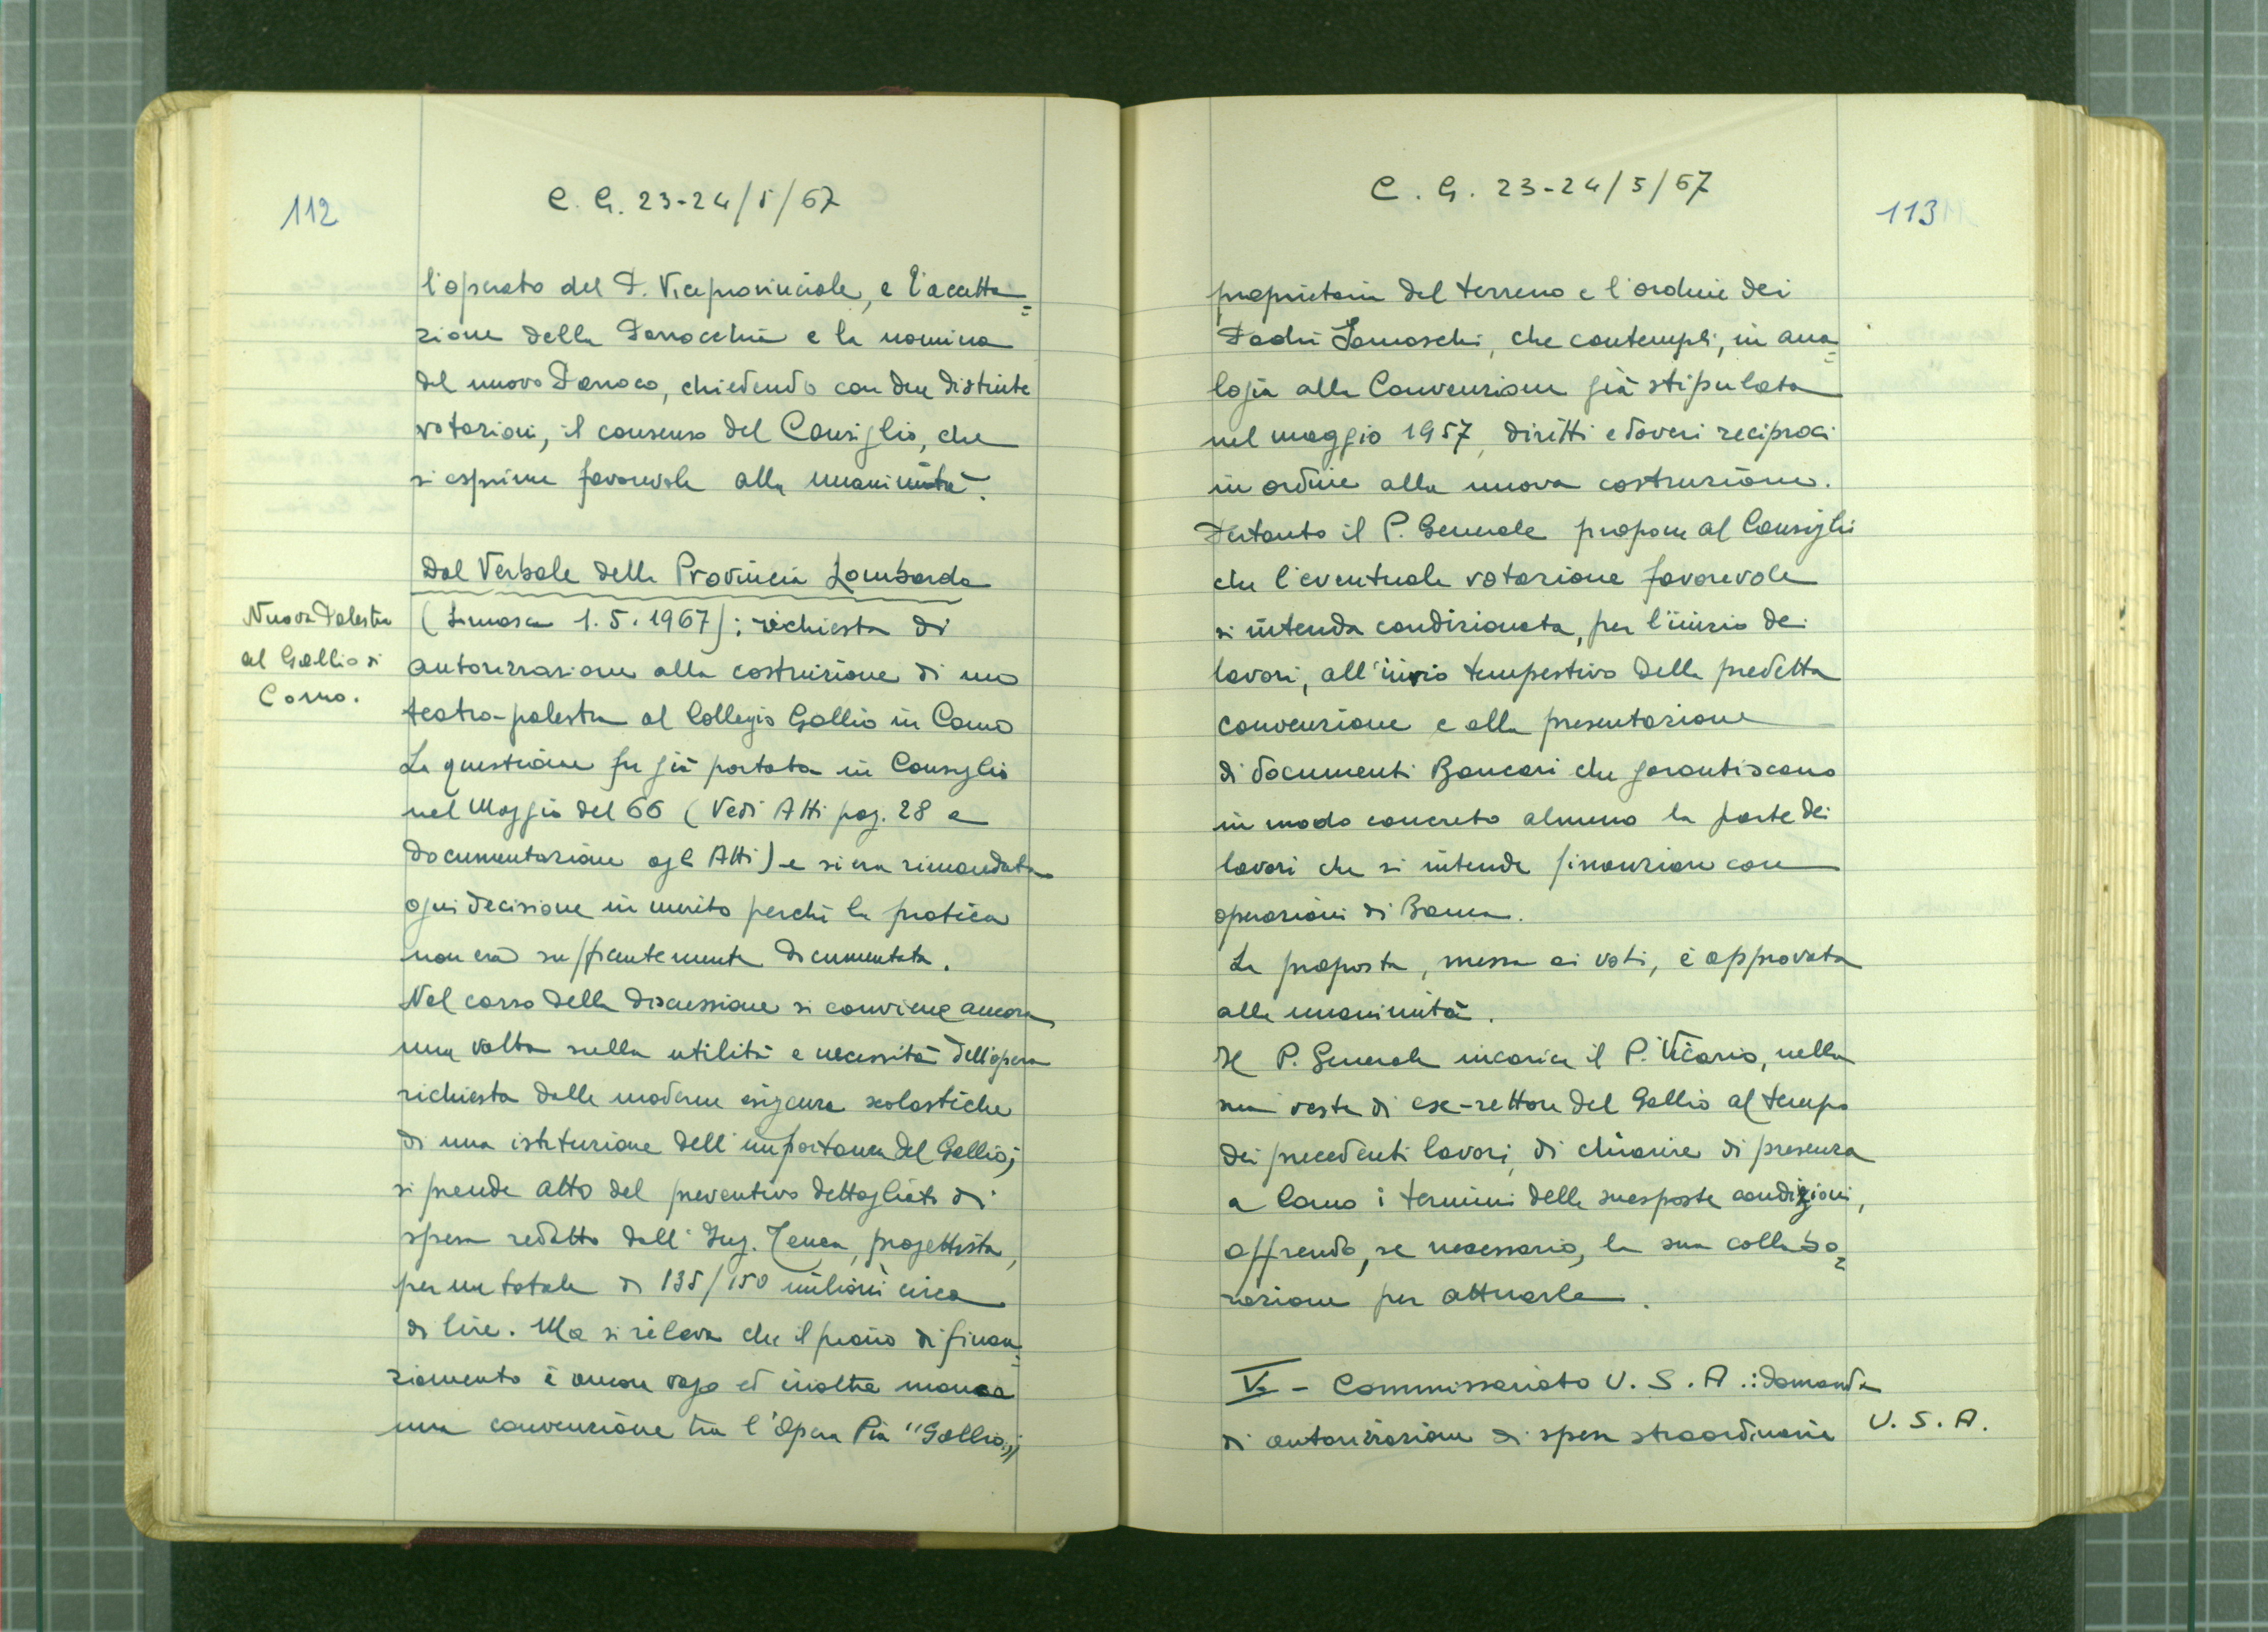 112
C. G. 23-24/5/67
l'operato del P. Viceprovinciale, e l'accetta=
zione della Parrocchia e la nomina
del nuovo Parroco, chiedendo con due distinte
votazioni, il consenso del Consiglio, che
si esprime favorevole alla unanimità.
Dal Verbale della Provincia Lombarda
Nuova Palestra
al Gallio di
Como.
(Somasca 1.5.1967): richiesta di
autorizzazione alla costruzione di una
teatro-palestra al Collegio Gallio in Como
La questione fu già portata in Consiglio
nel Maggio del 66 (Vedi Atti pag. 28 e
documentazione agli Atti) e si era rimandata
ogni decisione in merito perché la pratica
non era sufficientemente documentata.
Nel corso della discussione si conviene ancora
una volta sulla utilità e necessità dell'opera
richiesta dalle moderne esigenze scolastiche
di una istituzione dell'importanza del Gallio;
si prende atto del preventivo dettagliato di
spesa redatto dall'Ing. Tenca, progettista,
per un totale di 135/150 milioni circa
di lire. Ma si rileva che il piano di finan=
ziamento è ancora vago ed inoltre manca
una convenzione tra l'Opera Pia "Gallio",
C. G. 23-24/5/67
113
proprietaria del terreno e l'ordine dei
Padri Somaschi, che contempli, in ana=
logia alla Convenzione già stipulata
nel maggio 1957, diritti e doveri reciproci
in ordine alla nuova costruzione.
Pertanto il P. Generale propone al Consiglio
che l'eventuale votazione favorevole
si intenda condizionata, per l'inizio dei
lavori, all'invio tempestivo della predetta
convenzione e alla presentazione
di documenti Bancari che garantiscano
in modo concreto almeno la parte dei
lavori che si intende finanziare con
operazioni di Banca.
La proposta, messa ai voti, è approvata
alla unanimità.
Il P. Generale incarica il P. Vicario, nella
sua veste di ex-rettore del Gallio al tempo
dei precedenti lavori, di chiarire di presenza
a Como i termini delle suesposte condizioni,
offrendo, se necessario, la sua collabo=
razione per attuarle.
V - Commissariato U.S.A.: domanda
di autorizzazione di spese straordinarie
U.S.A.